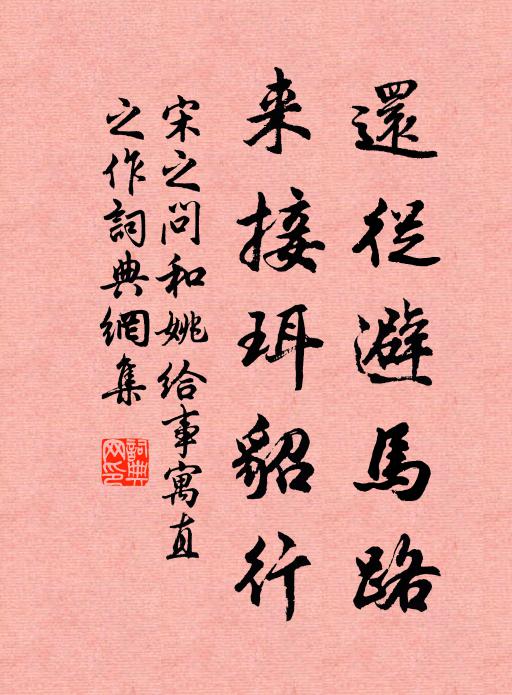 還從避馬路
来接珥貂行
宋之問和姚給事寓直
之作詞典網集
詞典网印